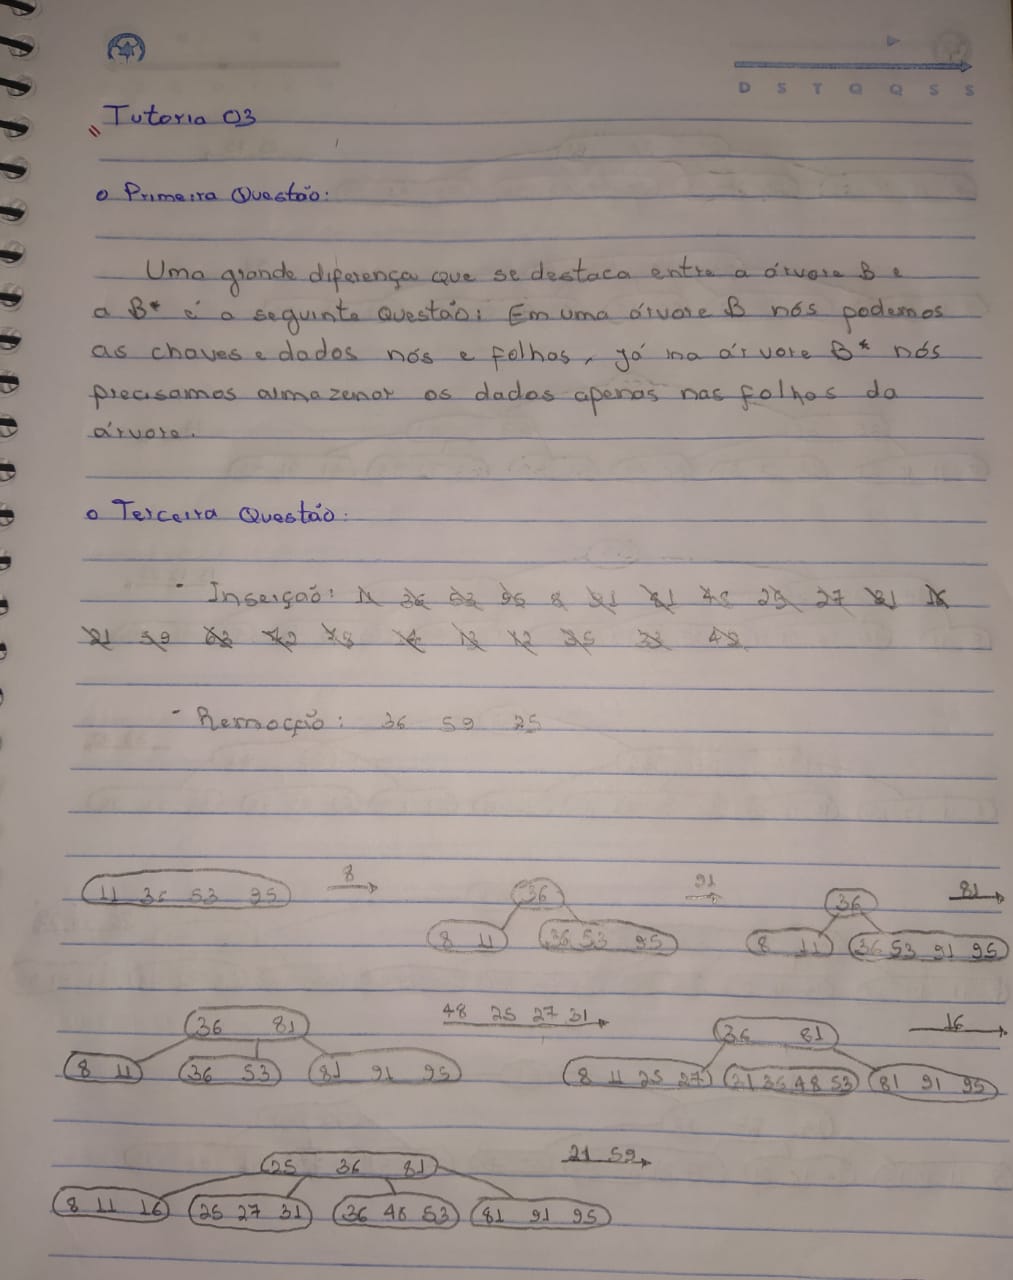 D S T Q Q S S
Tutoria 03
Primeira Questão:
Uma grande diferença que se destaca entre a árvore B e
a B* é a seguinte questão: Em uma árvore B nós podemos
as chaves e dados nós e folhas, já na árvore B* nós
precisamos armazenar os dados apenas nas folhas da
árvore.
Terceira Questão:
- Inserção: 11 36 53 95 8 91 81 48 25 27 31 16
21 59
- Remocção: 36 59 25
11 36 53 95 8 36 91 36 81
8 11 36 53 95 8 11 36 53 91 95
36 81 48 25 27 31 36 81 16
8 11 36 53 81 91 95 8 11 25 27 31 36 48 53 81 91 95
25 36 81 21 59
8 11 16 25 27 31 36 48 53 81 91 95